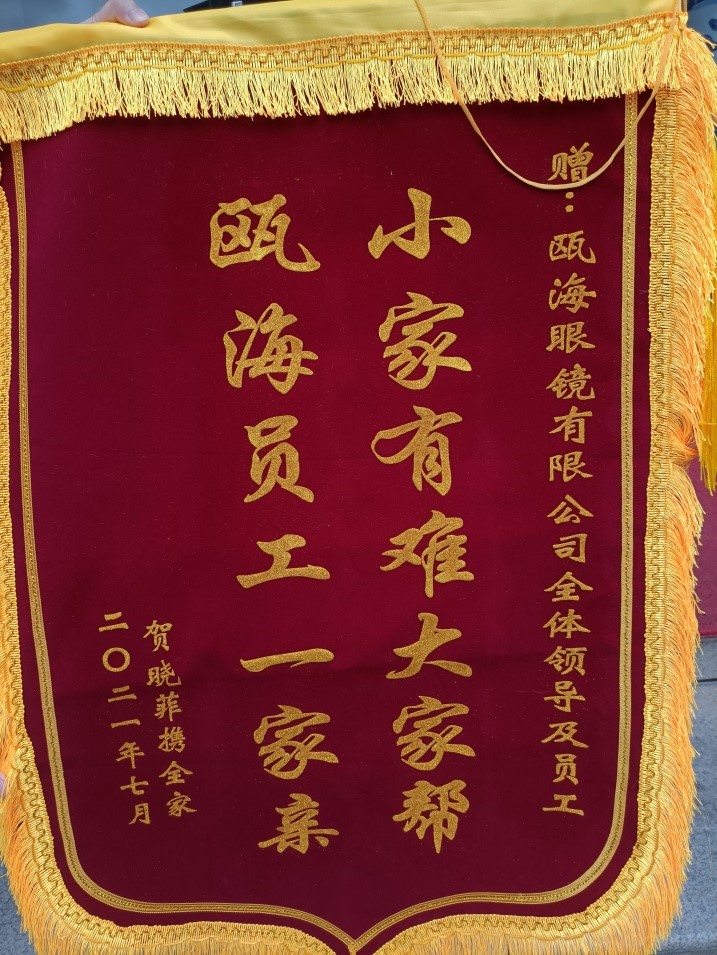 赠：瓯海眼镜有限公司全体领导及员工
小家有难大家帮
瓯海员工一家亲
贺晓菲携全家
二〇二一年七月